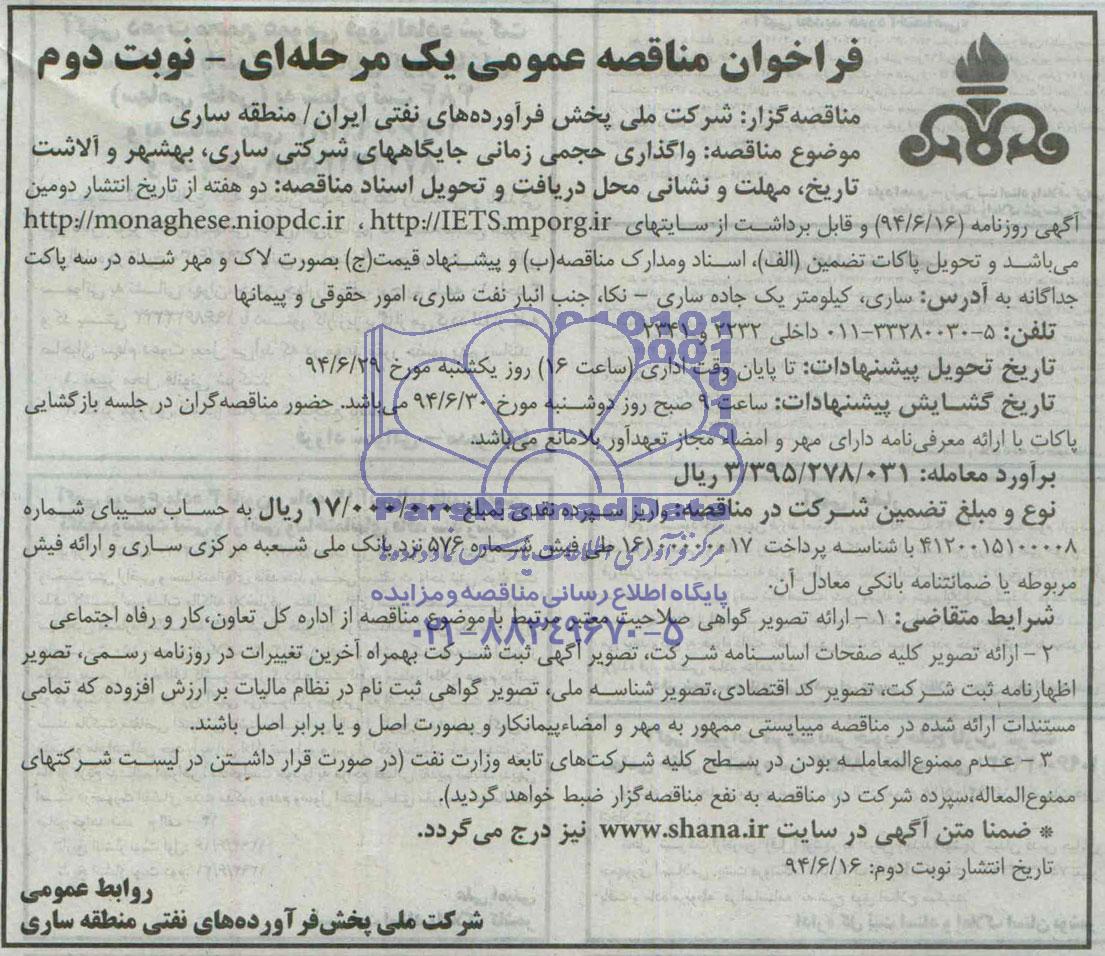 فراخوان مناقصه عمومی یک مرحله‌ای - نوبت دوم
مناقصه‌گزار: شرکت ملی پخش فرآورده‌های نفتی ایران/ منطقه ساری
موضوع مناقصه: واگذاری حجمی زمانی جایگاههای شرکتی ساری، بهشهر و آلاشت
تاریخ، مهلت و نشانی محل دریافت و تحویل اسناد مناقصه: دو هفته از تاریخ انتشار دومین
آگهی روزنامه (۹۴/۶/۱۶) و قابل برداشت از سایتهای http://IETS.mporg.ir ، http://monaghese.niopdc.ir
می‌باشد و تحویل پاکات تضمین (الف)، اسناد ومدارک مناقصه(ب) و پیشنهاد قیمت(ج) بصورت لاک و مهر شده در سه پاکت
جداگانه به آدرس: ساری، کیلومتر یک جاده ساری - نکا، جنب انبار نفت ساری، امور حقوقی و پیمانها
تلفن: ۵-۳۳۲۸۰۰۳۰-۰۱۱ داخلی ۲۲۳۲ و ۲۳۴۱
تاریخ تحویل پیشنهادات: تا پایان وقت اداری (ساعت ۱۶) روز یکشنبه مورخ ۹۴/۶/۲۹
تاریخ گشایش پیشنهادات: ساعت ۹ صبح روز دوشنبه مورخ ۹۴/۶/۳۰ می‌باشد. حضور مناقصه‌گران در جلسه بازگشایی
پاکات با ارائه معرفی‌نامه دارای مهر و امضاء مجاز تعهدآور بلامانع می‌باشد.
برآورد معامله: ۳/۳۹۵/۲۷۸/۰۳۱ ریال
نوع و مبلغ تضمین شرکت در مناقصه: واریز سپرده نقدی بمبلغ ۱۷/۰۰۰/۰۰۰ ریال به حساب سیبای شماره
۴۱۲۰۰۱۵۱۰۰۰۰۸ با شناسه پرداخت طی فیش شماره ۵۷۶ نزد بانک ملی شعبه مرکزی ساری و ارائه فیش
مربوطه یا ضمانتنامه بانکی معادل آن.
شرایط متقاضی: ۱ - ارائه تصویر گواهی صلاحیت معتبر مرتبط با موضوع مناقصه از اداره کل تعاون،کار و رفاه اجتماعی
۲ - ارائه تصویر کلیه صفحات اساسنامه شرکت، تصویر آگهی ثبت شرکت بهمراه آخرین تغییرات در روزنامه رسمی، تصویر
اظهارنامه ثبت شرکت، تصویر کد اقتصادی،تصویر شناسه ملی، تصویر گواهی ثبت نام در نظام مالیات بر ارزش افزوده که تمامی
مستندات ارائه شده در مناقصه میبایستی ممهور به مهر و امضاءپیمانکار و بصورت اصل و یا برابر اصل باشند.
۳ - عدم ممنوع‌المعامله بودن در سطح کلیه شرکت‌های تابعه وزارت نفت (در صورت قرار داشتن در لیست شرکتهای
ممنوع‌المعاله،سپرده شرکت در مناقصه به نفع مناقصه‌گزار ضبط خواهد گردید).
* ضمنا متن آگهی در سایت www.shana.ir نیز درج می‌گردد.
تاریخ انتشار نوبت دوم: ۹۴/۶/۱۶
روابط عمومی
شرکت ملی پخش‌فرآورده‌های نفتی منطقه ساری
ParsNamadData
مرکز فرآوری اطلاعات پارس نماد داده‌ها
پایگاه اطلاع رسانی مناقصه و مزایده
۰۲۱-۸۸۳۴۹۶۷۰-۵